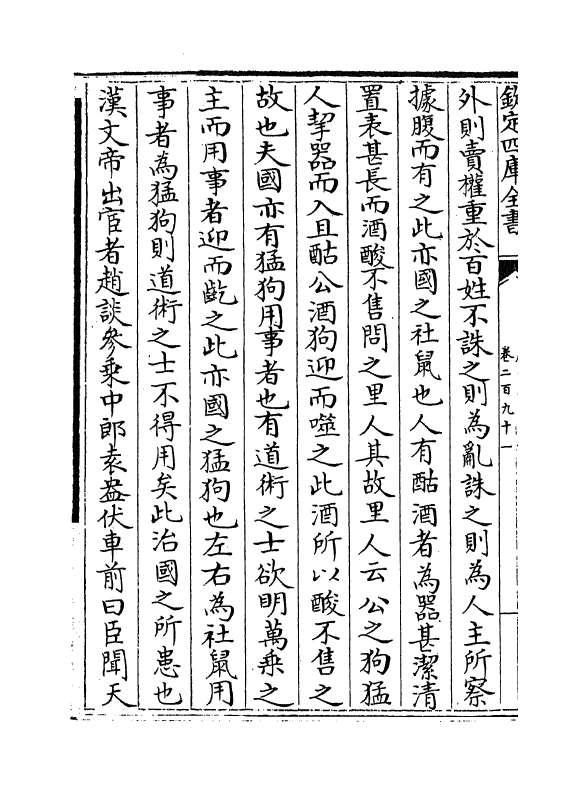 欽定四庫全書
卷二百九十一
外則賣權重於百姓不誅之則為亂誅之則為人主所察
據腹而有之此亦國之社鼠也人有酤酒者為器甚潔清
置表甚長而酒酸不售問之里人其故里人云公之狗猛
人挈器而入且酤公酒狗迎而噬之此酒所以酸不售之
故也夫國亦有猛狗用事者也有道術之士欲明萬乘之
主而用事者迎而齕之此亦國之猛狗也左右為社鼠用
事者為猛狗則道術之士不得用矣此治國之所患也
漢文帝出宦者趙談參乘中郎袁盎伏車前曰臣聞天